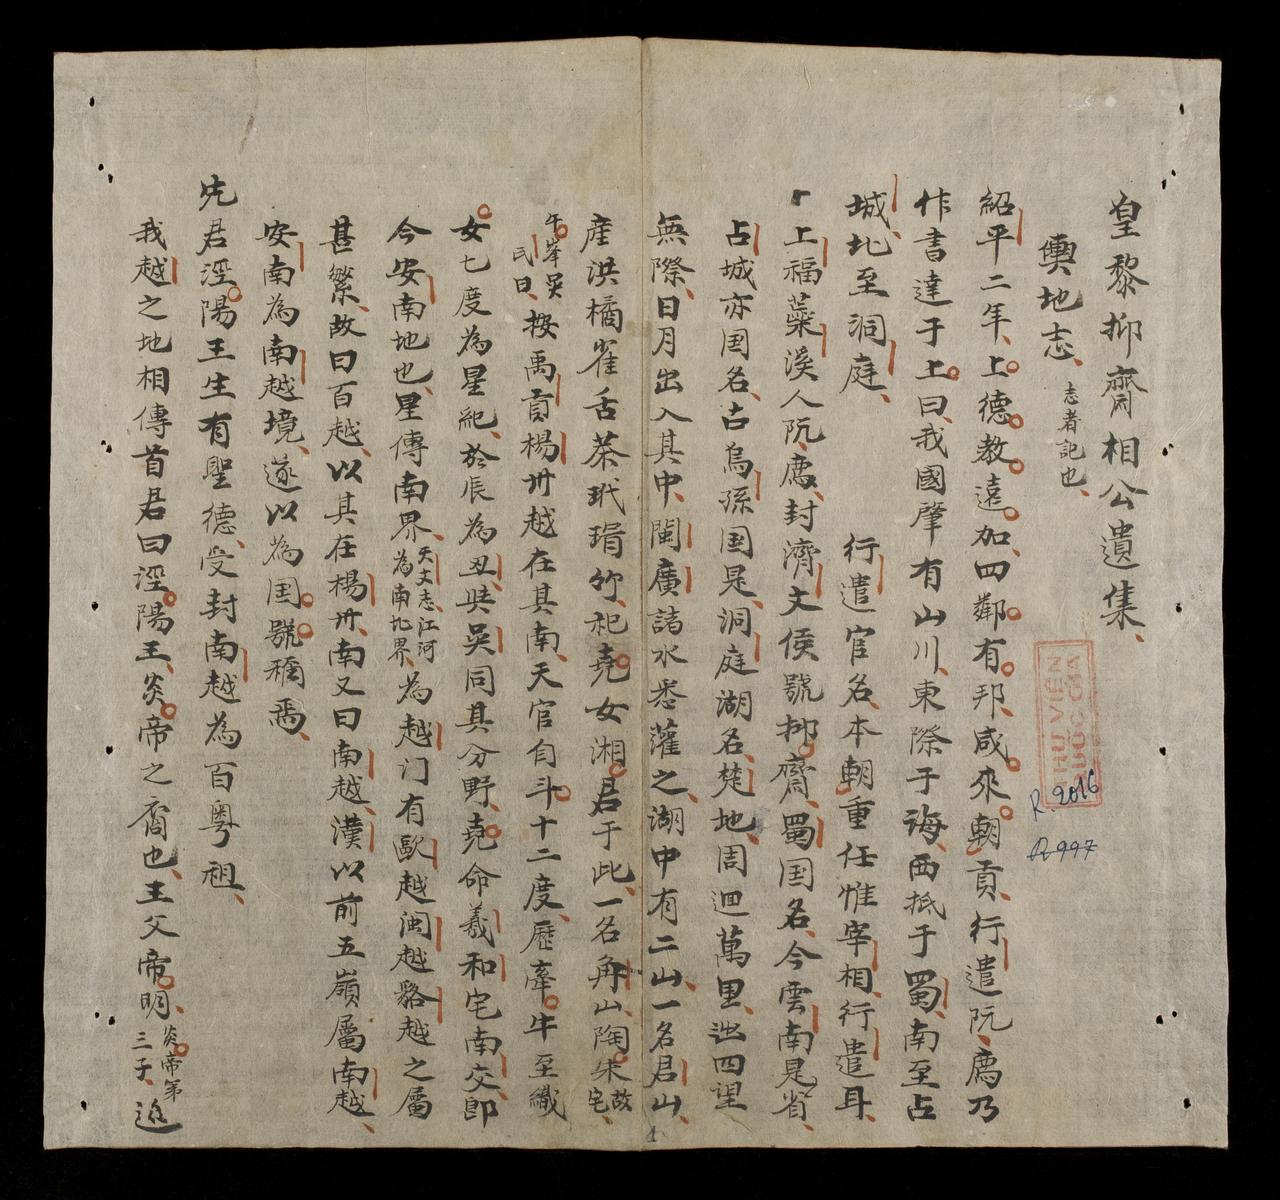 皇黎抑齋相公遺集
輿地志 志者記也
紹平二年上德教遠加四鄰有邦咸來朝貢行遣阮廌乃
作書達于上曰我國肇有山川東際于海西抵于蜀南至占
城北至洞庭 行遣官名本朝重任惟宰相行遣耳
上福蕊溪人阮廌封濟文侯號抑齋蜀国名今雲南是省
占城亦国名古烏孫国是洞庭湖名楚地周迴萬里四望
無際日月出入其中閩廣諸水悉滙之湖中有二山一名君山
産洪橘雀舌茶玳瑁竹祀堯女湘君于此一名角山陶朱故宅
午峯吳氏曰按禹貢楊卅越在其南天官自斗十二度歷牽牛至織
女七度為星紀於辰為丑與吳同其分野堯命羲和宅南交即
今安南地也星傳南界天文志江河為南北界為越门有歐越闽越駱越之屬
甚繁故曰百越以其在楊卅南又曰南越漢以前五嶺屬南越
安南為南越境遂以為国號稱焉
先君涇陽王生有聖德受封南越為百粵祖
我越之地相傳首君曰涇陽王炎帝之裔也王父帝明炎帝第三子
THƯ VIỆN
QUỐC GIA
R.2016
R 997